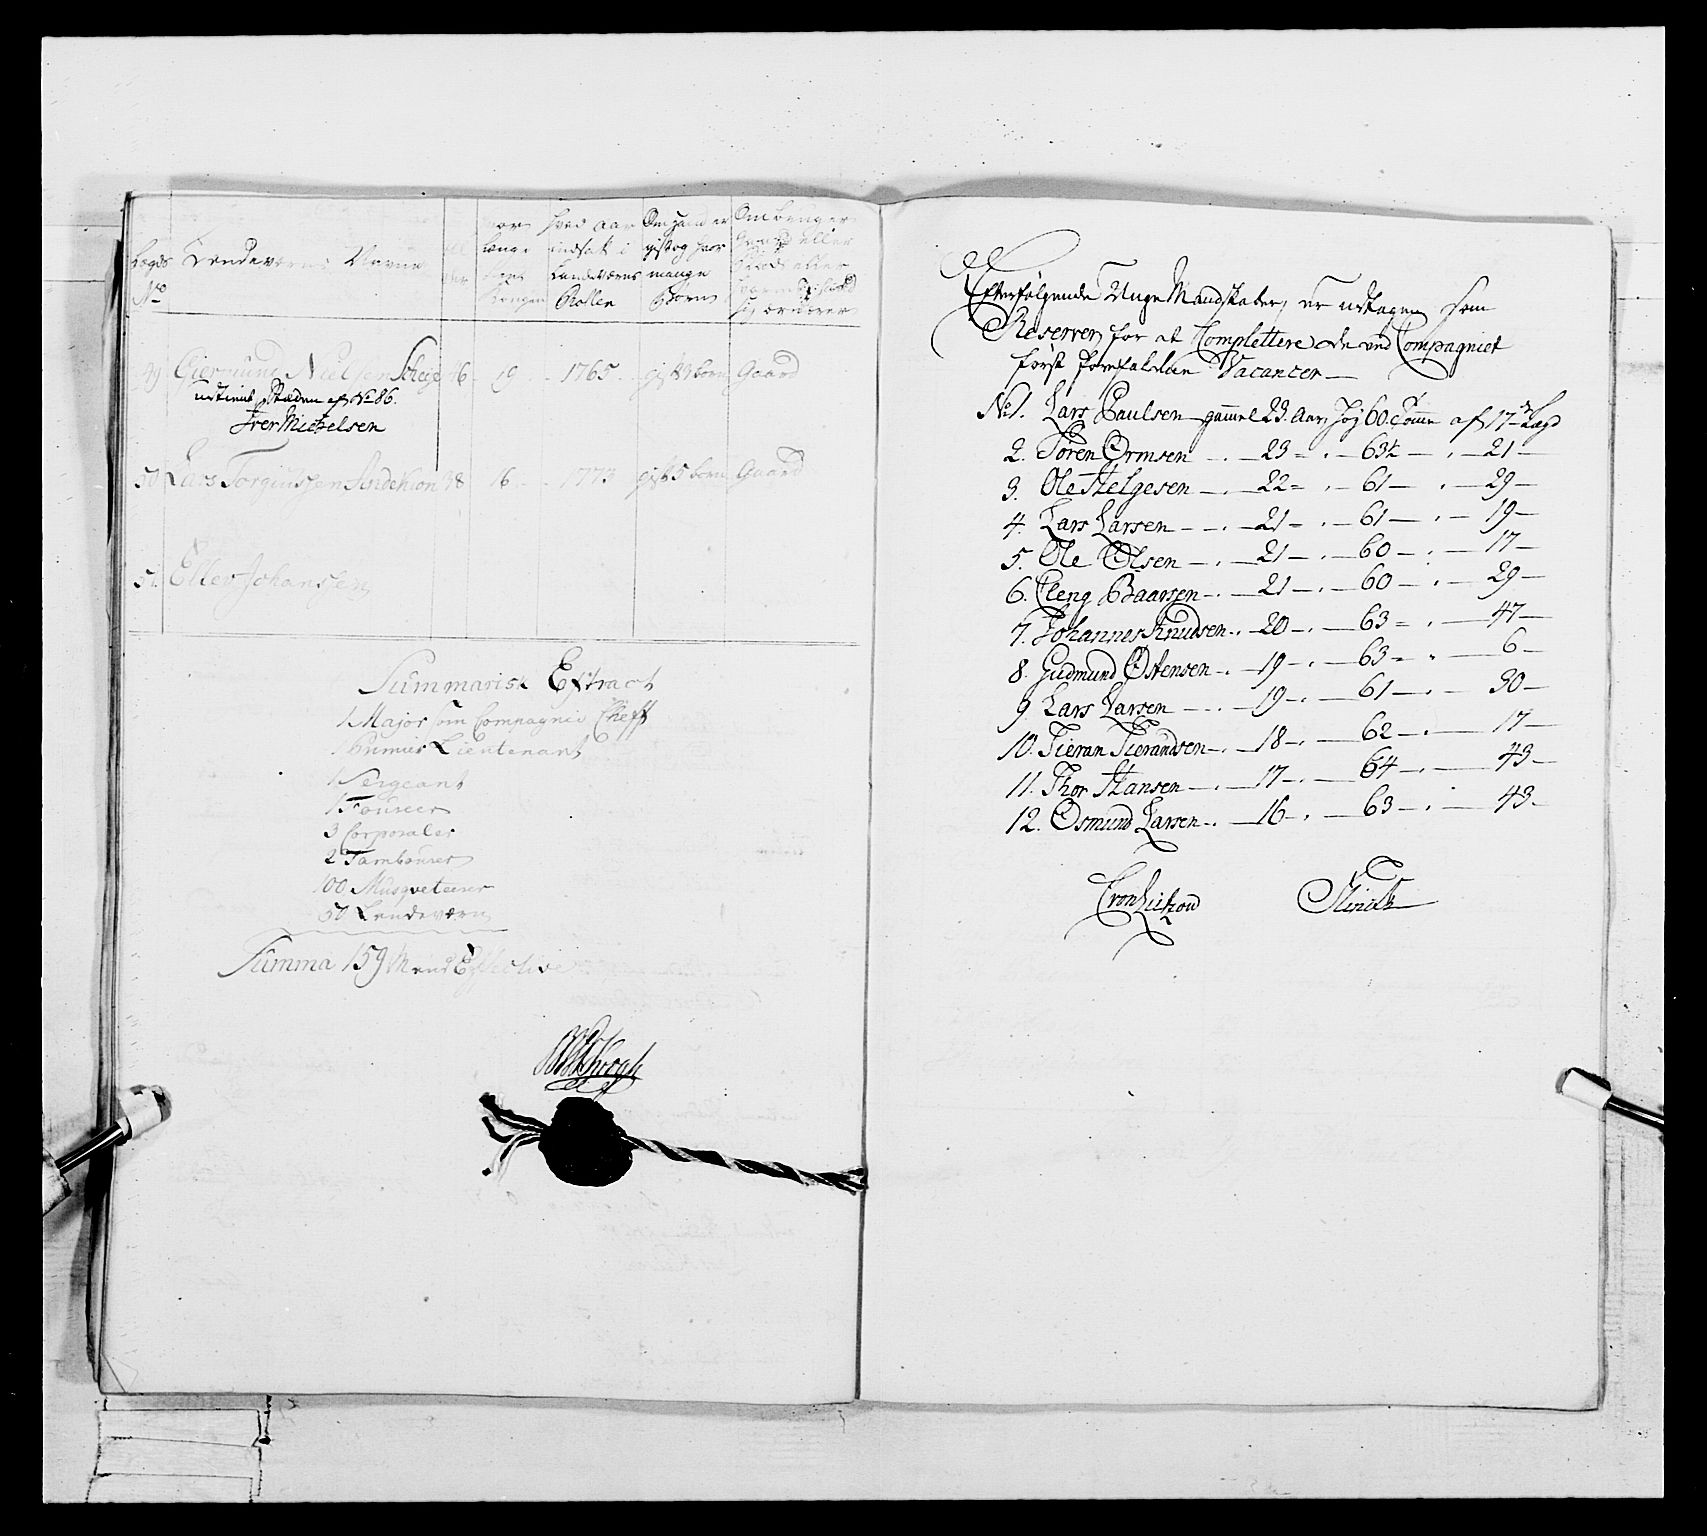 Lægds No
Landeværns Navne
længe
tient
Kongen
hvad aar
indsat i
Landeværns
Rollen
Om hand er
gift og hvor
mange
Børn
Om bruger
Gaard eller
Plads eller
49 Giermund Nielsen Scheie 46 19 1765 gift børn Gaard
udtient Stæden af No 86.
Iver Michelsen
50 Lars Torgiussen 38 16 1773 gift 5 børn Gaard
51. Eller Johanssen
Summarisk Extract
1 Major som Compagnie Cheff
1 Premier Lieutenant
1 Sergeant
1 Foureer
3 Corporaler
2 Tambourer
100 Musqveteerer
50 Landeværn
Summa 159 Mand Effective
Efterfølgende Unge Mandskaber, er udtagen som
Reserver for at Complettere de ved Compagniet
først forefaldne Vacancer
No 1. Lars Paulsen gammel 23 Aar, høj 60 Tomme af 17de Lægd
2. Tøren Ormsen 23 63½ 21
3. Ole Helgesen 22 61 29
4. Lars Larsen 21 61 19
5. Ole Olsen 21 60 17
6. Eleng Baarsen 21 60 29
7. Johannes Knudsen 20 63 47
8. Gudmund Østensen 19 63 6
9. Lars Larsen 19 61 30
10. Tieran Tierandsen 18 62 17
11. Thor Hansen 17 64 43
12. Osmund Larsen 16 63 43